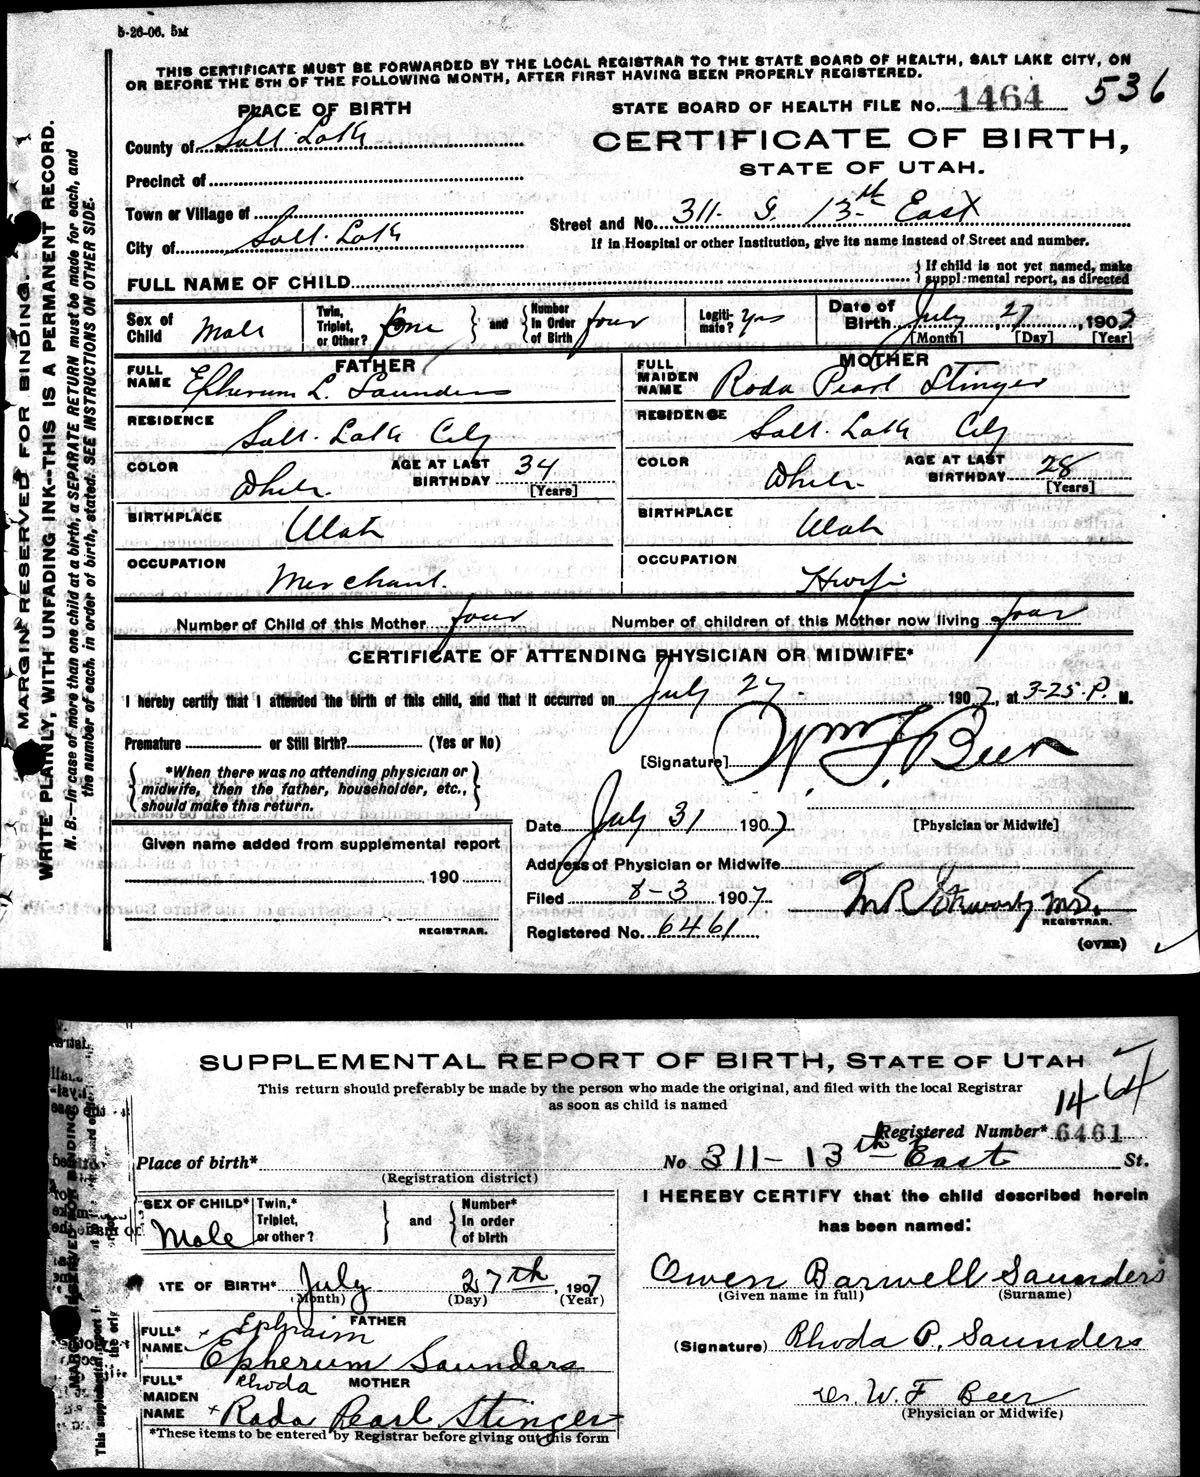 5-26-06. 5M
THIS CERTIFICATE MUST BE FORWARDED BY THE LOCAL REGISTRAR TO THE STATE BOARD OF HEALTH, SALT LAKE CITY, ON
OR BEFORE THE 5TH OF THE FOLLOWING MONTH, AFTER FIRST HAVING BEEN PROPERLY REGISTERED.
PLACE OF BIRTH
STATE BOARD OF HEALTH FILE NO. 1464 536
County of Salt Lake
CERTIFICATE OF BIRTH,
STATE OF UTAH.
Precinct of
Town or Village of
Street and No. 311 S. 13th East
City of Salt Lake
If in Hospital or other Institution, give its name instead of Street and number.
FULL NAME OF CHILD
If child is not yet named, make
supplemental report, as directed
Sex of Child Male
Twin, Triplet, or Other? one and Number In Order of Birth four
Legitimate? yes
Date of Birth July 27, 1907
[Month] [Day] [Year]
FATHER
FULL NAME Epherum L. Saunders
RESIDENCE Salt Lake City
COLOR White AGE AT LAST BIRTHDAY 34 [Years]
BIRTHPLACE Utah
OCCUPATION Merchant.
MOTHER
FULL MAIDEN NAME Roda Pearl Stinger
RESIDENCE Salt Lake City
COLOR White AGE AT LAST BIRTHDAY 28 [Years]
BIRTHPLACE Utah
OCCUPATION Hwife
Number of Child of this Mother four Number of children of this Mother now living four
CERTIFICATE OF ATTENDING PHYSICIAN OR MIDWIFE*
I hereby certify that I attended the birth of this child, and that it occurred on July 27 1907, at 3-25 P. M.
Premature or Still Birth? (Yes or No)
[Signature] Wm F. Beer
*When there was no attending physician or
midwife, then the father, householder, etc.,
should make this return.
Date July 31 1907
[Physician or Midwife]
Given name added from supplemental report
190
REGISTRAR.
Address of Physician or Midwife
Filed 8-3 1907
Registered No. 6461
REGISTRAR.
(OVER)
MARGIN RESERVED FOR BINDING.
WRITE PLAINLY, WITH UNFADING INK--THIS IS A PERMANENT RECORD.
N. B.--In case of more than one child at a birth, a SEPARATE RETURN must be made for each, and
the number of each, in order of birth, stated. SEE INSTRUCTIONS ON OTHER SIDE.
SUPPLEMENTAL REPORT OF BIRTH, STATE OF UTAH
This return should preferably be made by the person who made the original, and filed with the local Registrar
as soon as child is named
1464
Registered Number* 6461
Place of birth* No 311- 13th East St.
(Registration district)
SEX OF CHILD* Male
Twin,* Triplet, or other? and Number* In order of birth
DATE OF BIRTH* July 27th, 1907
(Month) (Day) (Year)
Ephraim FATHER
FULL* NAME Epherum Saunders
Rhoda MOTHER
FULL* MAIDEN NAME Roda Pearl Stinger
*These items to be entered by Registrar before giving out this form
I HEREBY CERTIFY that the child described herein
has been named:
Owen Barwell Saunders
(Given name in full) (Surname)
(Signature) Rhoda P. Saunders
Dr. W. F. Beer
(Physician or Midwife)